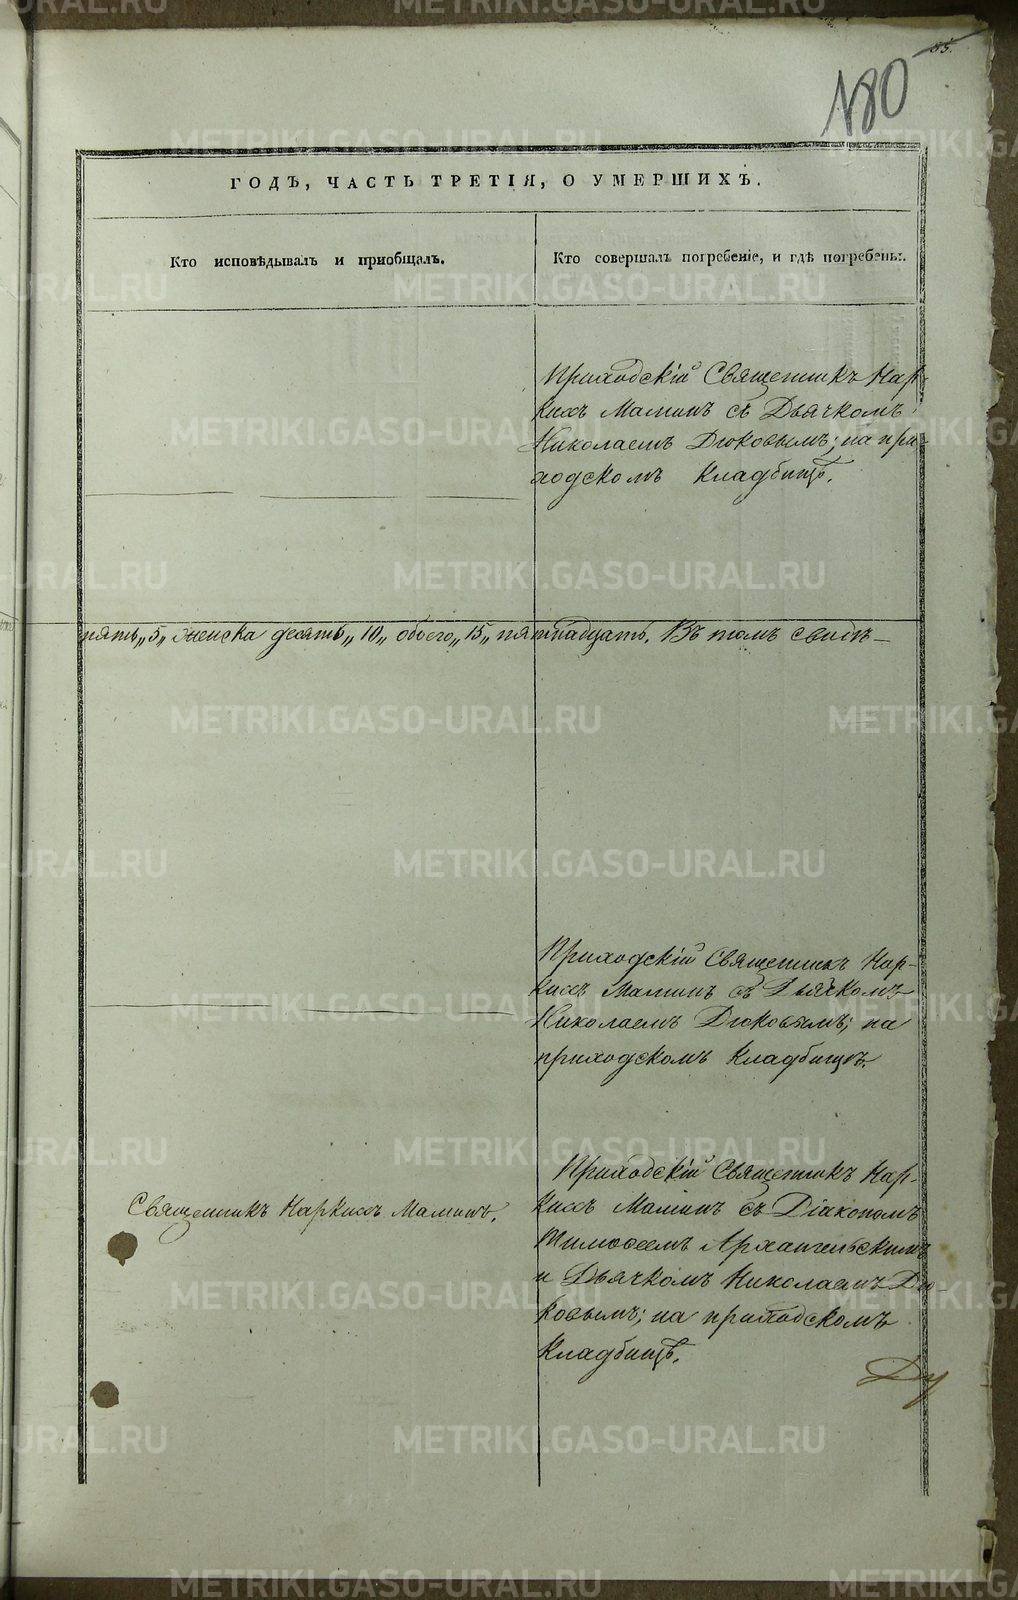 85.
180
ГОДЪ, ЧАСТЬ ТРЕТІЯ, О УМЕРШИХЪ.
Кто исповѣдывалъ и пріобщалъ.
Кто совершалъ погребеніе, и гдѣ погребены.
Приходскій Священникъ Нар-
киссъ Маминъ съ Дьячкомъ
Николаемъ Дюковымъ; на при-
ходскомъ кладбищѣ.
пять„ 5„ женска десять„ 10„ обоего„ 15„ пятнадцать. Въ томъ свидѣ-
Приходскій Священникъ Нар-
киссъ Маминъ съ Дьячкомъ
Николаемъ Дюковымъ; на
приходскомъ кладбищѣ.
Священникъ Наркиссъ Маминъ.
Приходскій Священникъ Нар-
киссъ Маминъ съ Діакономъ
Тимоѳеемъ Архангельскимъ
и Дьячкомъ Николаемъ Дю-
ковымъ; на приходскомъ
кладбищѣ.
METRIKI.GASO-URAL.RU